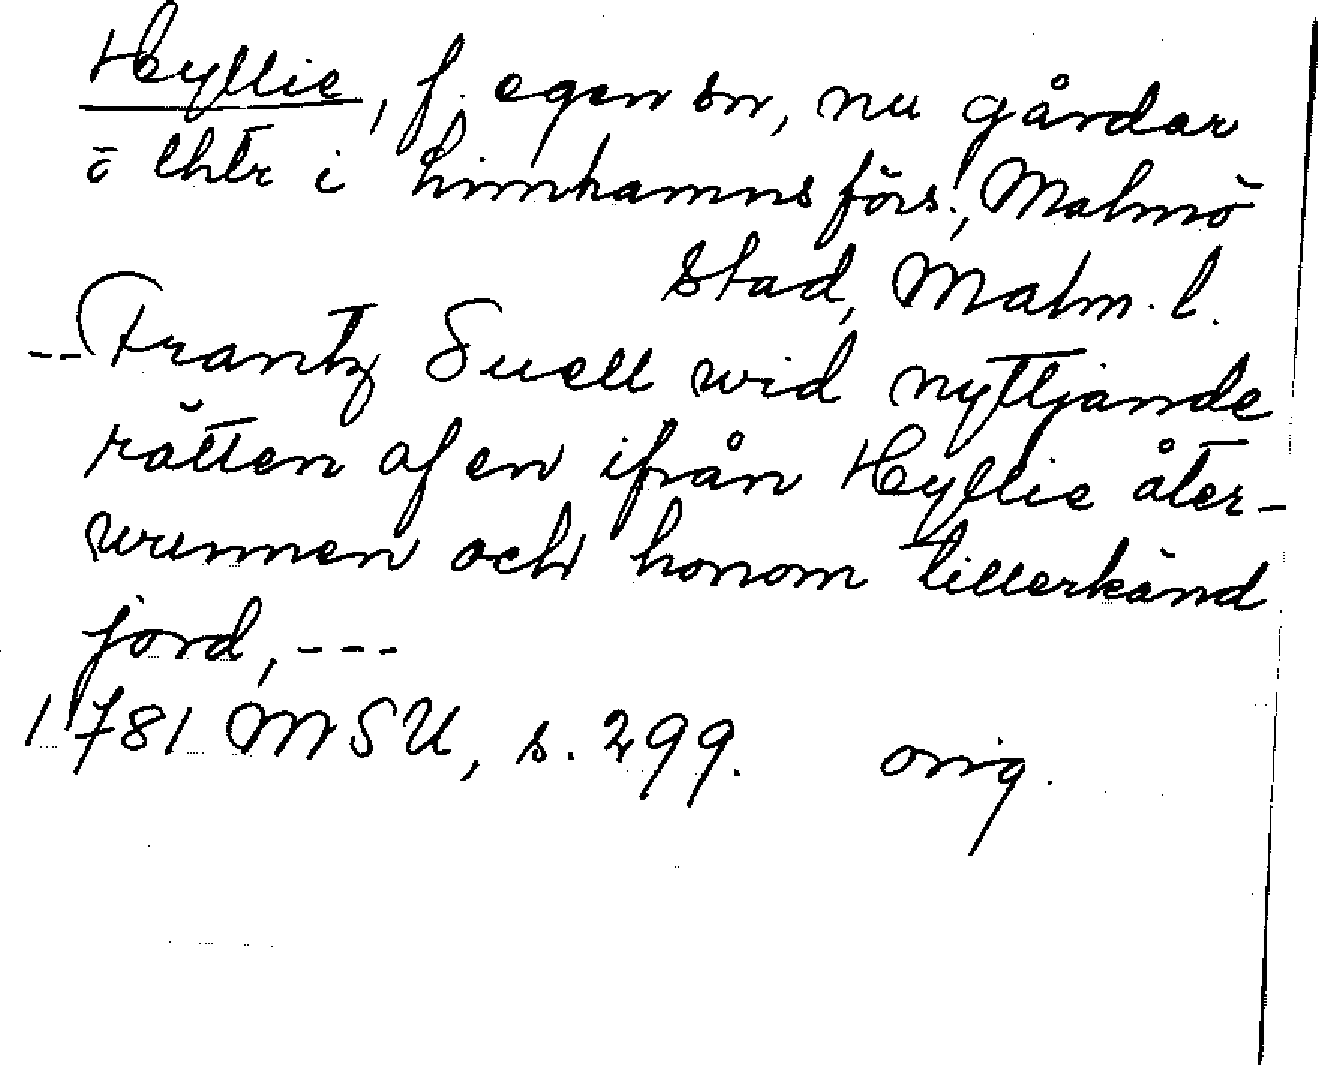 Hyllie, f. egen sn, nu gårdar
o lhtr i Limhamns förs., Malmö
stad, Malm. l.
--- Frantz Suell wid nyttjande
rätten af en ifrån Hyllie åter-
wunnen och honom tillerkänd
jord, ---
1781 MSU, s. 299. orig.